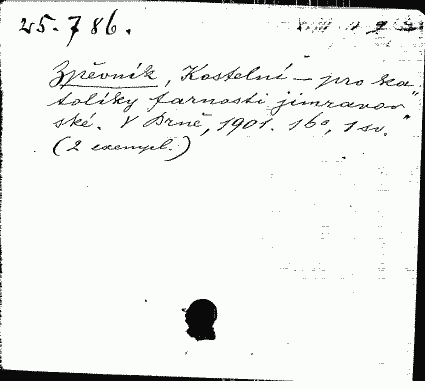 25.786.
Zpěvník, Kostelní – pro ka"
tolíky farnosti jimravov"
ské. V Brně, 1901. 16°, 1 sv.
(2 exempl.)